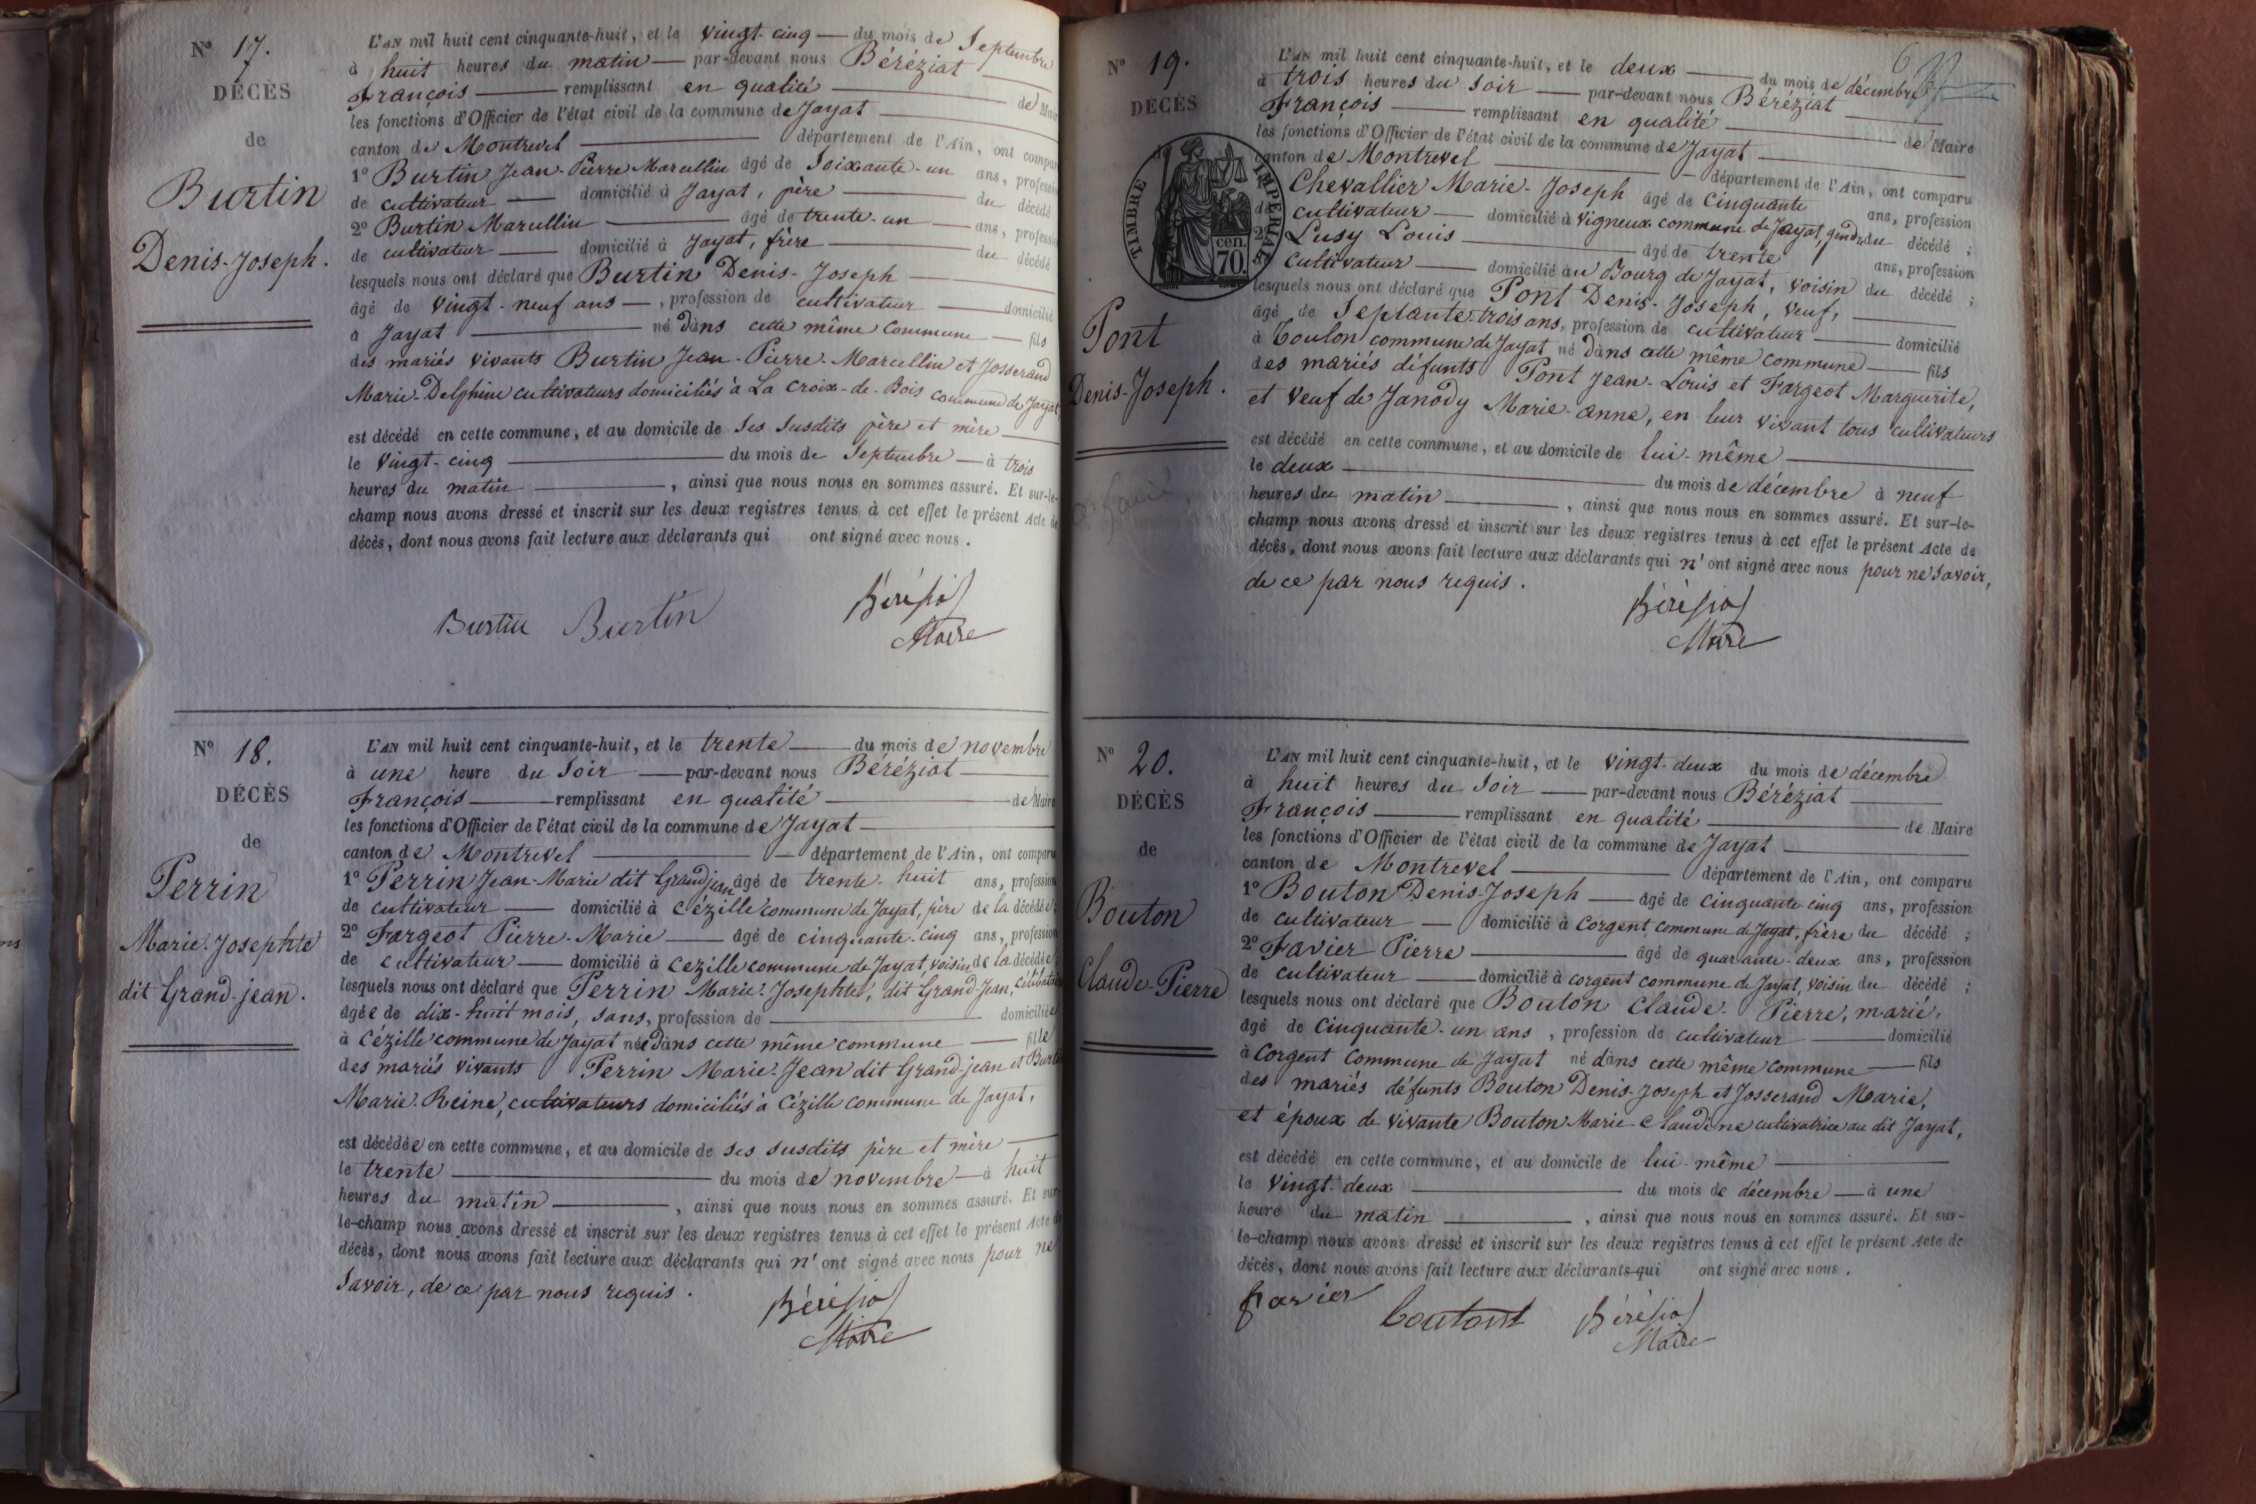 N° 17.
DÉCÈS
de
Burtin
Denis-Joseph.
L'AN mil huit cent cinquante-huit, et le vingt-cinq du mois de Septembre
à huit heures du matin par-devant nous Béréziat
François remplissant en qualité de Maire
les fonctions d'Officier de l'état civil de la commune de Jayat
canton de Montrevel département de l'Ain, ont comparu
1° Burtin Jean-Pierre Marcellin âgé de Soixante-un ans, profession
de cultivateur domicilié à Jayat, père du décédé
2° Burtin Marcellin âgé de trente-un ans, profession
de cultivateur domicilié à Jayat, frère du décédé
lesquels nous ont déclaré que Burtin Denis-Joseph
âgé de vingt-neuf ans, profession de cultivateur domicilié
à Jayat né dans cette même commune fils
des mariés vivants Burtin Jean-Pierre-Marcellin et Josserand
Marie-Delphine cultivateurs domiciliés à La Croix-de-Bois commune de Jayat
est décédé en cette commune, et au domicile de ses susdits père et mère
le vingt-cinq du mois de Septembre à trois
heures du matin, ainsi que nous nous en sommes assuré. Et sur-le-
champ nous avons dressé et inscrit sur les deux registres tenus à cet effet le présent Acte de
décès, dont nous avons fait lecture aux déclarants qui ont signé avec nous.
Burtin Burtin Béréziat
Maire
N° 18.
DÉCÈS
de
Perrin
Marie-Josephte
dit Grand-jean.
L'AN mil huit cent cinquante-huit, et le trente du mois de novembre
à une heure du Soir par-devant nous Béréziat
François remplissant en qualité de Maire
les fonctions d'Officier de l'état civil de la commune de Jayat
canton de Montrevel département de l'Ain, ont comparu
1° Perrin Jean-Marie dit Grandjean âgé de trente-huit ans, profession
de cultivateur domicilié à Cézille commune de Jayat, père de la décédée;
2° Fargeot Pierre-Marie âgé de cinquante-cinq ans, profession
de cultivateur domicilié à Cezille commune de Jayat, voisin de la décédée
lesquels nous ont déclaré que Perrin Marie-Josephte, dit Grand Jean, célibataire
âgée de dix-huit mois, sans, profession de domiciliée
à Cézille commune de Jayat née dans cette même commune fille
des mariés vivants Perrin Marie-Jean dit Grand-jean et
Marie-Reine, cultivateurs domiciliés à Cézille commune de Jayat,
est décédée en cette commune, et au domicile de ses susdits père et mère
le trente du mois de novembre à huit
heures du matin, ainsi que nous nous en sommes assuré. Et sur-
le-champ nous avons dressé et inscrit sur les deux registres tenus à cet effet le présent Acte de
décès, dont nous avons fait lecture aux déclarants qui n'ont signé avec nous pour ne
Savoir, de ce par nous requis.
Béréziat
Maire
N° 19.
DÉCÈS
de
TIMBRE IMPÉRIAL
70 cen.
Pont
Denis-Joseph.
L'AN mil huit cent cinquante-huit, et le deux du mois de décembre
à trois heures du Soir par-devant nous Béréziat
François remplissant en qualité de Maire
les fonctions d'Officier de l'état civil de la commune de Jayat
canton de Montrevel département de l'Ain, ont comparu
Chevallier Marie-Joseph âgé de Cinquante ans, profession
de cultivateur domicilié à Vigneux commune de Jayat, gendre du décédé;
2° Lusy Louis âgé de trente ans, profession
cultivateur domicilié au Bourg de Jayat, voisin du décédé;
lesquels nous ont déclaré que Pont Denis-Joseph, veuf,
âgé de Septante-trois ans, profession de cultivateur domicilié
à Toulon commune de Jayat né dans cette même commune fils
des mariés défunts Pont Jean-Louis et Fargeot Marguerite,
et veuf de Janody Marie-anne, en leur vivant tous cultivateurs
est décédé en cette commune, et au domicile de lui-même
le deux du mois de décembre à neuf
heures du matin, ainsi que nous nous en sommes assuré. Et sur-le-
champ nous avons dressé et inscrit sur les deux registres tenus à cet effet le présent Acte de
décès, dont nous avons fait lecture aux déclarants qui n'ont signé avec nous pour ne Savoir,
de ce par nous requis.
Béréziat
Maire
N° 20.
DÉCÈS
de
Bouton
Claude-Pierre
L'AN mil huit cent cinquante-huit, et le vingt-deux du mois de décembre
à huit heures du Soir par-devant nous Béréziat
François remplissant en qualité de Maire
les fonctions d'Officier de l'état civil de la commune de Jayat
canton de Montrevel département de l'Ain, ont comparu
1° Bouton Denis-Joseph âgé de cinquante-cinq ans, profession
de cultivateur domicilié à Corgent, commune de Jayat, frère du décédé;
2° Favier Pierre âgé de quarante-deux ans, profession
de cultivateur domicilié à corgent commune de Jayat, voisin du décédé;
lesquels nous ont déclaré que Bouton Claude-Pierre, marié,
âgé de Cinquante-un ans, profession de cultivateur domicilié
à Corgent commune de Jayat né dans cette même commune fils
des mariés défunts Bouton Denis-Joseph et Josserand Marie,
et époux de vivante Bouton Marie-Claudine cultivatrice au dit Jayat,
est décédé en cette commune, et au domicile de lui-même
le vingt-deux du mois de décembre à une
heure du matin, ainsi que nous nous en sommes assuré. Et sur-
le-champ nous avons dressé et inscrit sur les deux registres tenus à cet effet le présent Acte de
décès, dont nous avons fait lecture aux déclarants qui ont signé avec nous.
favier Boutont Béréziat
Maire